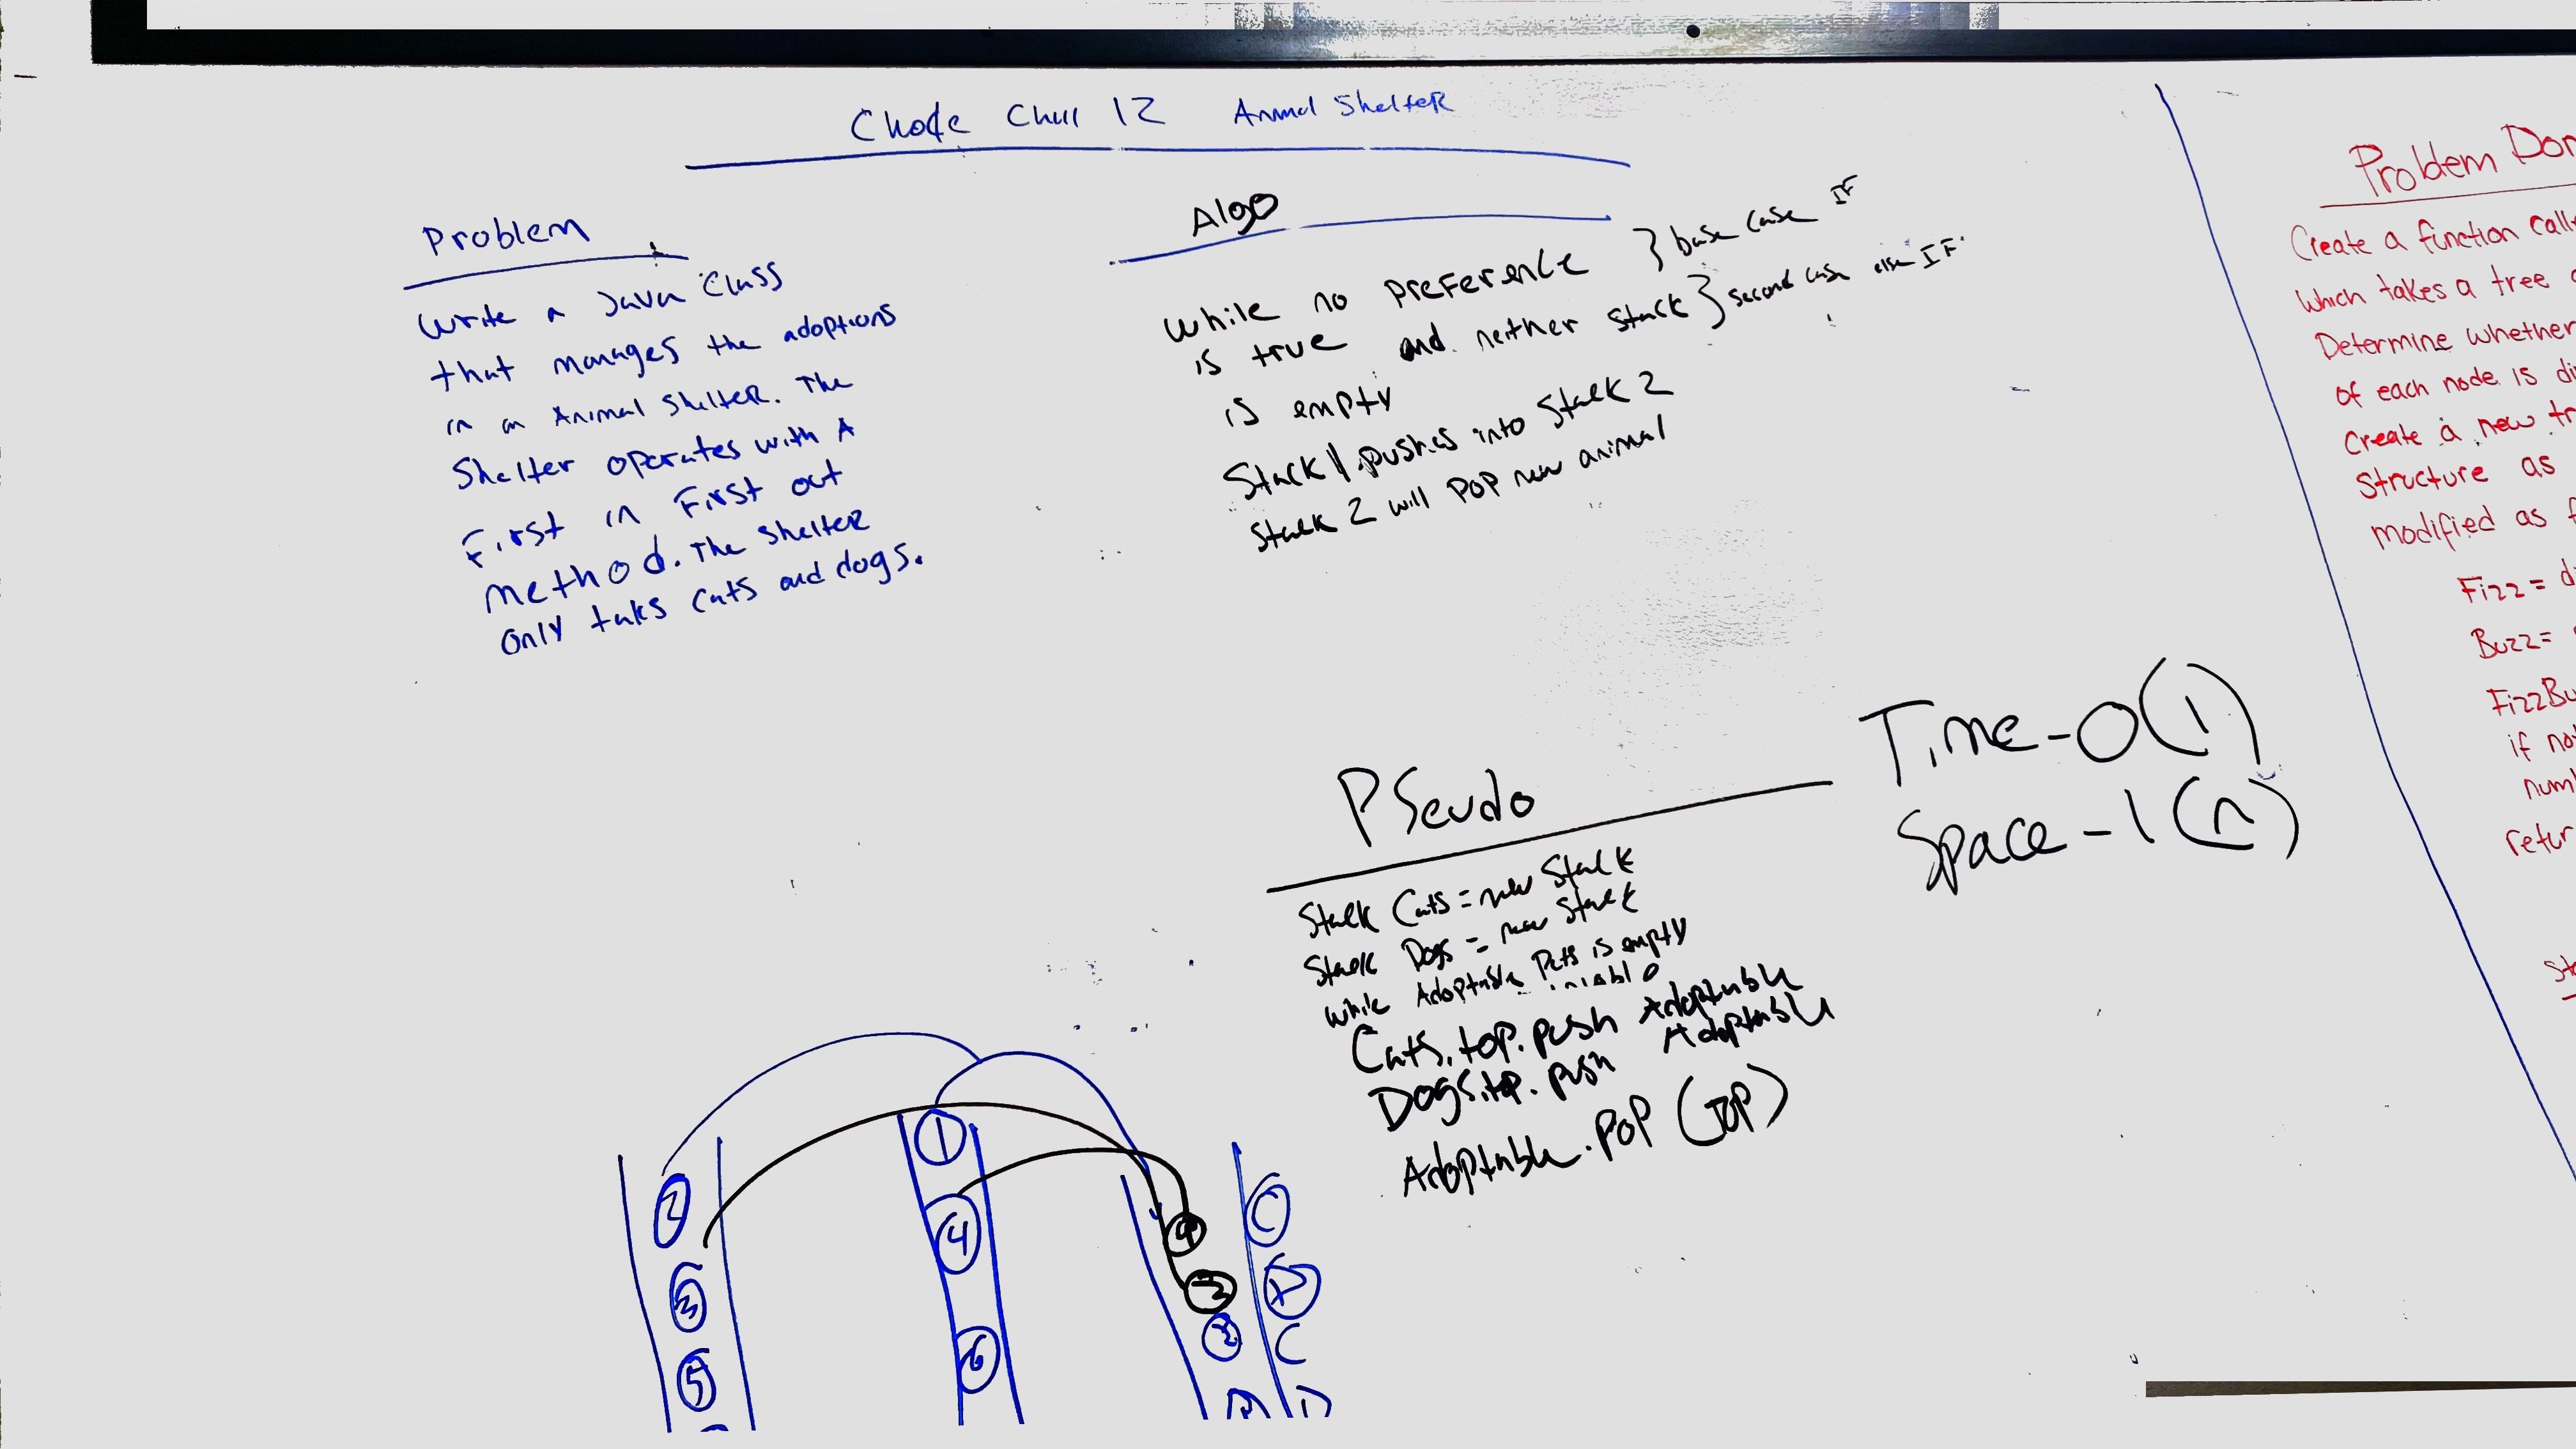 Chode Chall 12 Animal Shelter
Problem
Write a Java Class
that manages the adoptions
in an Animal Shelter. The
Shelter operates with A
First in First out
method. The Shelter
Only takes Cats and dogs.
Algo
While no preference } base case IF
is true and neither stack } second case else IF
is empty
Stack 1 pushes into Stack 2
Stack 2 will POP new animal
Time - O(1)
Space - 1(n)
PSeudo
Stack Cats = new Stack
Stack Dogs = new Stack
While Adoptable Pets is empty
Cats.top.push Adoptable
Dogs.top.push Adoptable
Adoptable.POP (TOP)
2
3
5
1
4
6
4
3
2
C
D
C
D
Problem Dom
Create a function calle
Which takes a tree
Determine whether
of each node is di
Create a new tr
Structure as
modified as f
Fizz = d
Buzz =
FizzBu
if no
num
retur
St